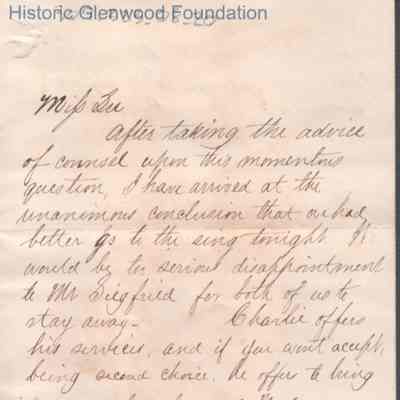 Historic Glenwood Foundation
Miss Lu
After taking the advice
of counsel upon this momentous
question, I have arrived at the
unanimous conclusion that we had
better go to the sing tonight. It
would be too serious disappointment
to Mr Siegfried for both of us to
stay away. Charlie offers
his services, and if you wont accept,
being second choice, he offers to bring